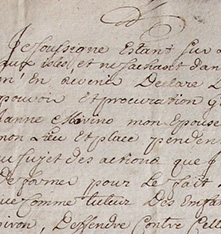 Je soussigné Estant sur L
aux isles, et ne sachant dan
En Revenir Declare D
pouvoir Et procuration q
anne Merino mon Epouse
mon Lieu et place penden
au sujet des actions que j
de former pour le fait
que comme tuteur des Enfan
Deffendre Contre Cel